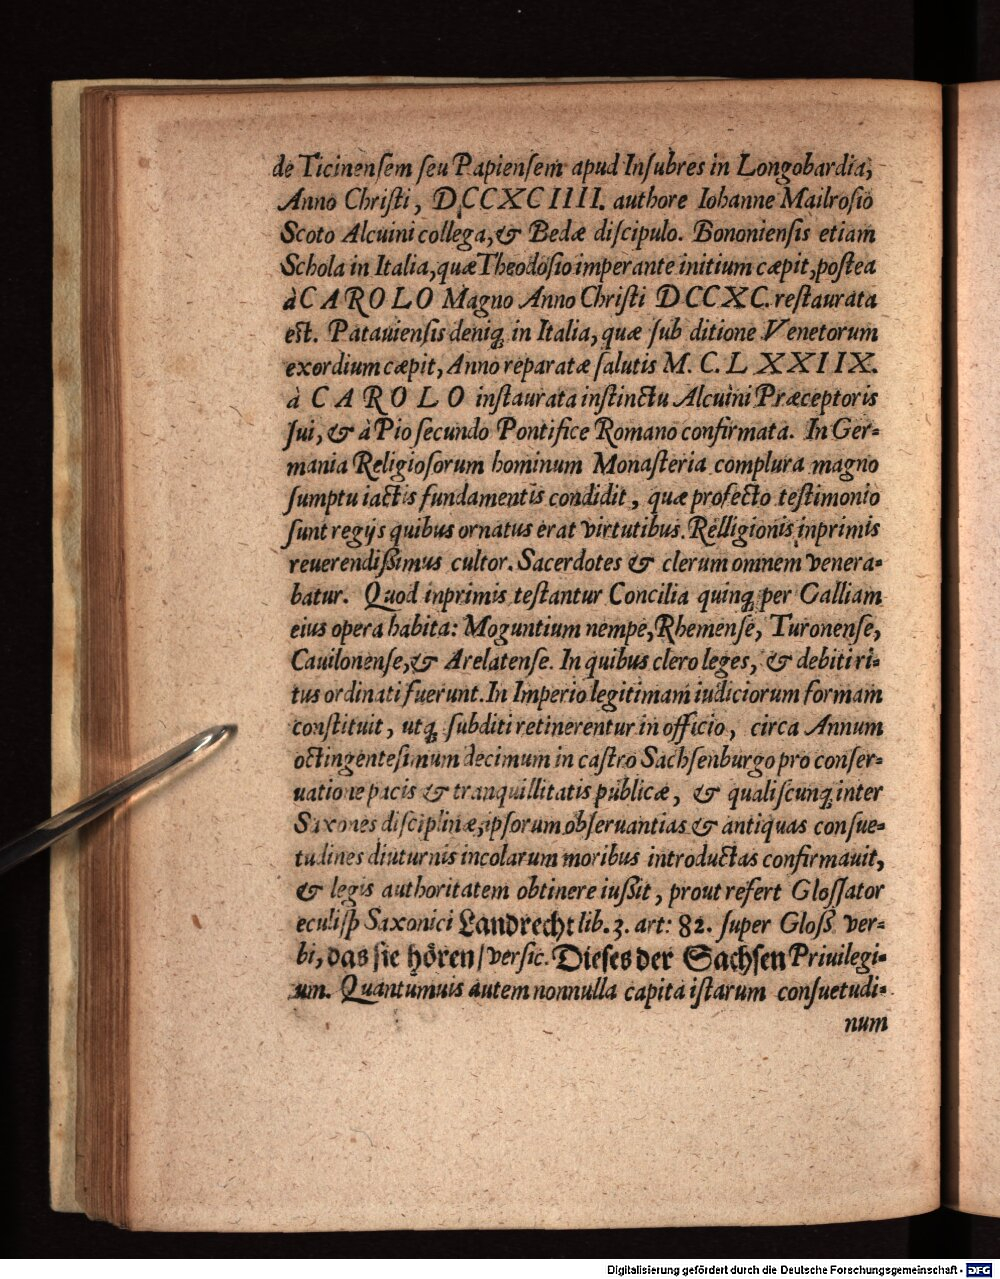 de Ticinenſem ſeu Papienſem apud Inſubres in Longobardia,
Anno Chriſti, DCCXCIIII. authore Iohanne Mailroſio
Scoto Alcuini collega, & Bedæ diſcipulo. Bononienſis etiam
Schola in Italia, quæ Theodoſio imperante initium cæpit, poſtea
à CAROLO Magno Anno Chriſti DCCXC. reſtaurata
eſt. Patauienſis deniq; in Italia, quæ ſub ditione Venetorum
exordium cæpit, Anno reparatæ ſalutis M. C. LXXIIX.
à CAROLO inſtaurata inſtinctu Alcuini Præceptoris
ſui, & à Pio ſecundo Pontifice Romano confirmata. In Ger-
mania Religioſorum hominum Monaſteria complura magno
ſumptu iactis fundamentis condidit, quæ profecto teſtimonio
ſunt regijs quibus ornatus erat virtutibus. Relligionis inprimis
reuerendiſſimus cultor. Sacerdotes & clerum omnem venera-
batur. Quod inprimis teſtantur Concilia quinq; per Galliam
eius opera habita: Moguntium nempe, Rhemenſe, Turonenſe,
Cauilonenſe, & Arelatenſe. In quibus clero leges, & debiti ri-
tus ordinati fuerunt. In Imperio legitimam iudiciorum formam
conſtituit, utq; ſubditi retinerentur in officio, circa Annum
octingenteſimum decimum in caſtro Sachſenburgo pro conſer-
uatione pacis & tranquillitatis publicæ, & qualiſcunq; inter
Saxones diſciplinæ, ipſorum obſeruantias & antiquas conſue-
tudines diuturnis incolarum moribus introductas confirmauit,
& legis authoritatem obtinere iuſſit, prout refert Gloſſator
Saxonici Landrecht lib. 3. art: 82. ſuper Gloſſ ver-
bi, das ſie hören / verſic. Dieſes der Sachſen Priuilegi-
um. Quantumuis autem nonnulla capita iſtarum conſuetudi-
num
Digitalisierung gefördert durch die Deutsche Forschungsgemeinschaft - DFG